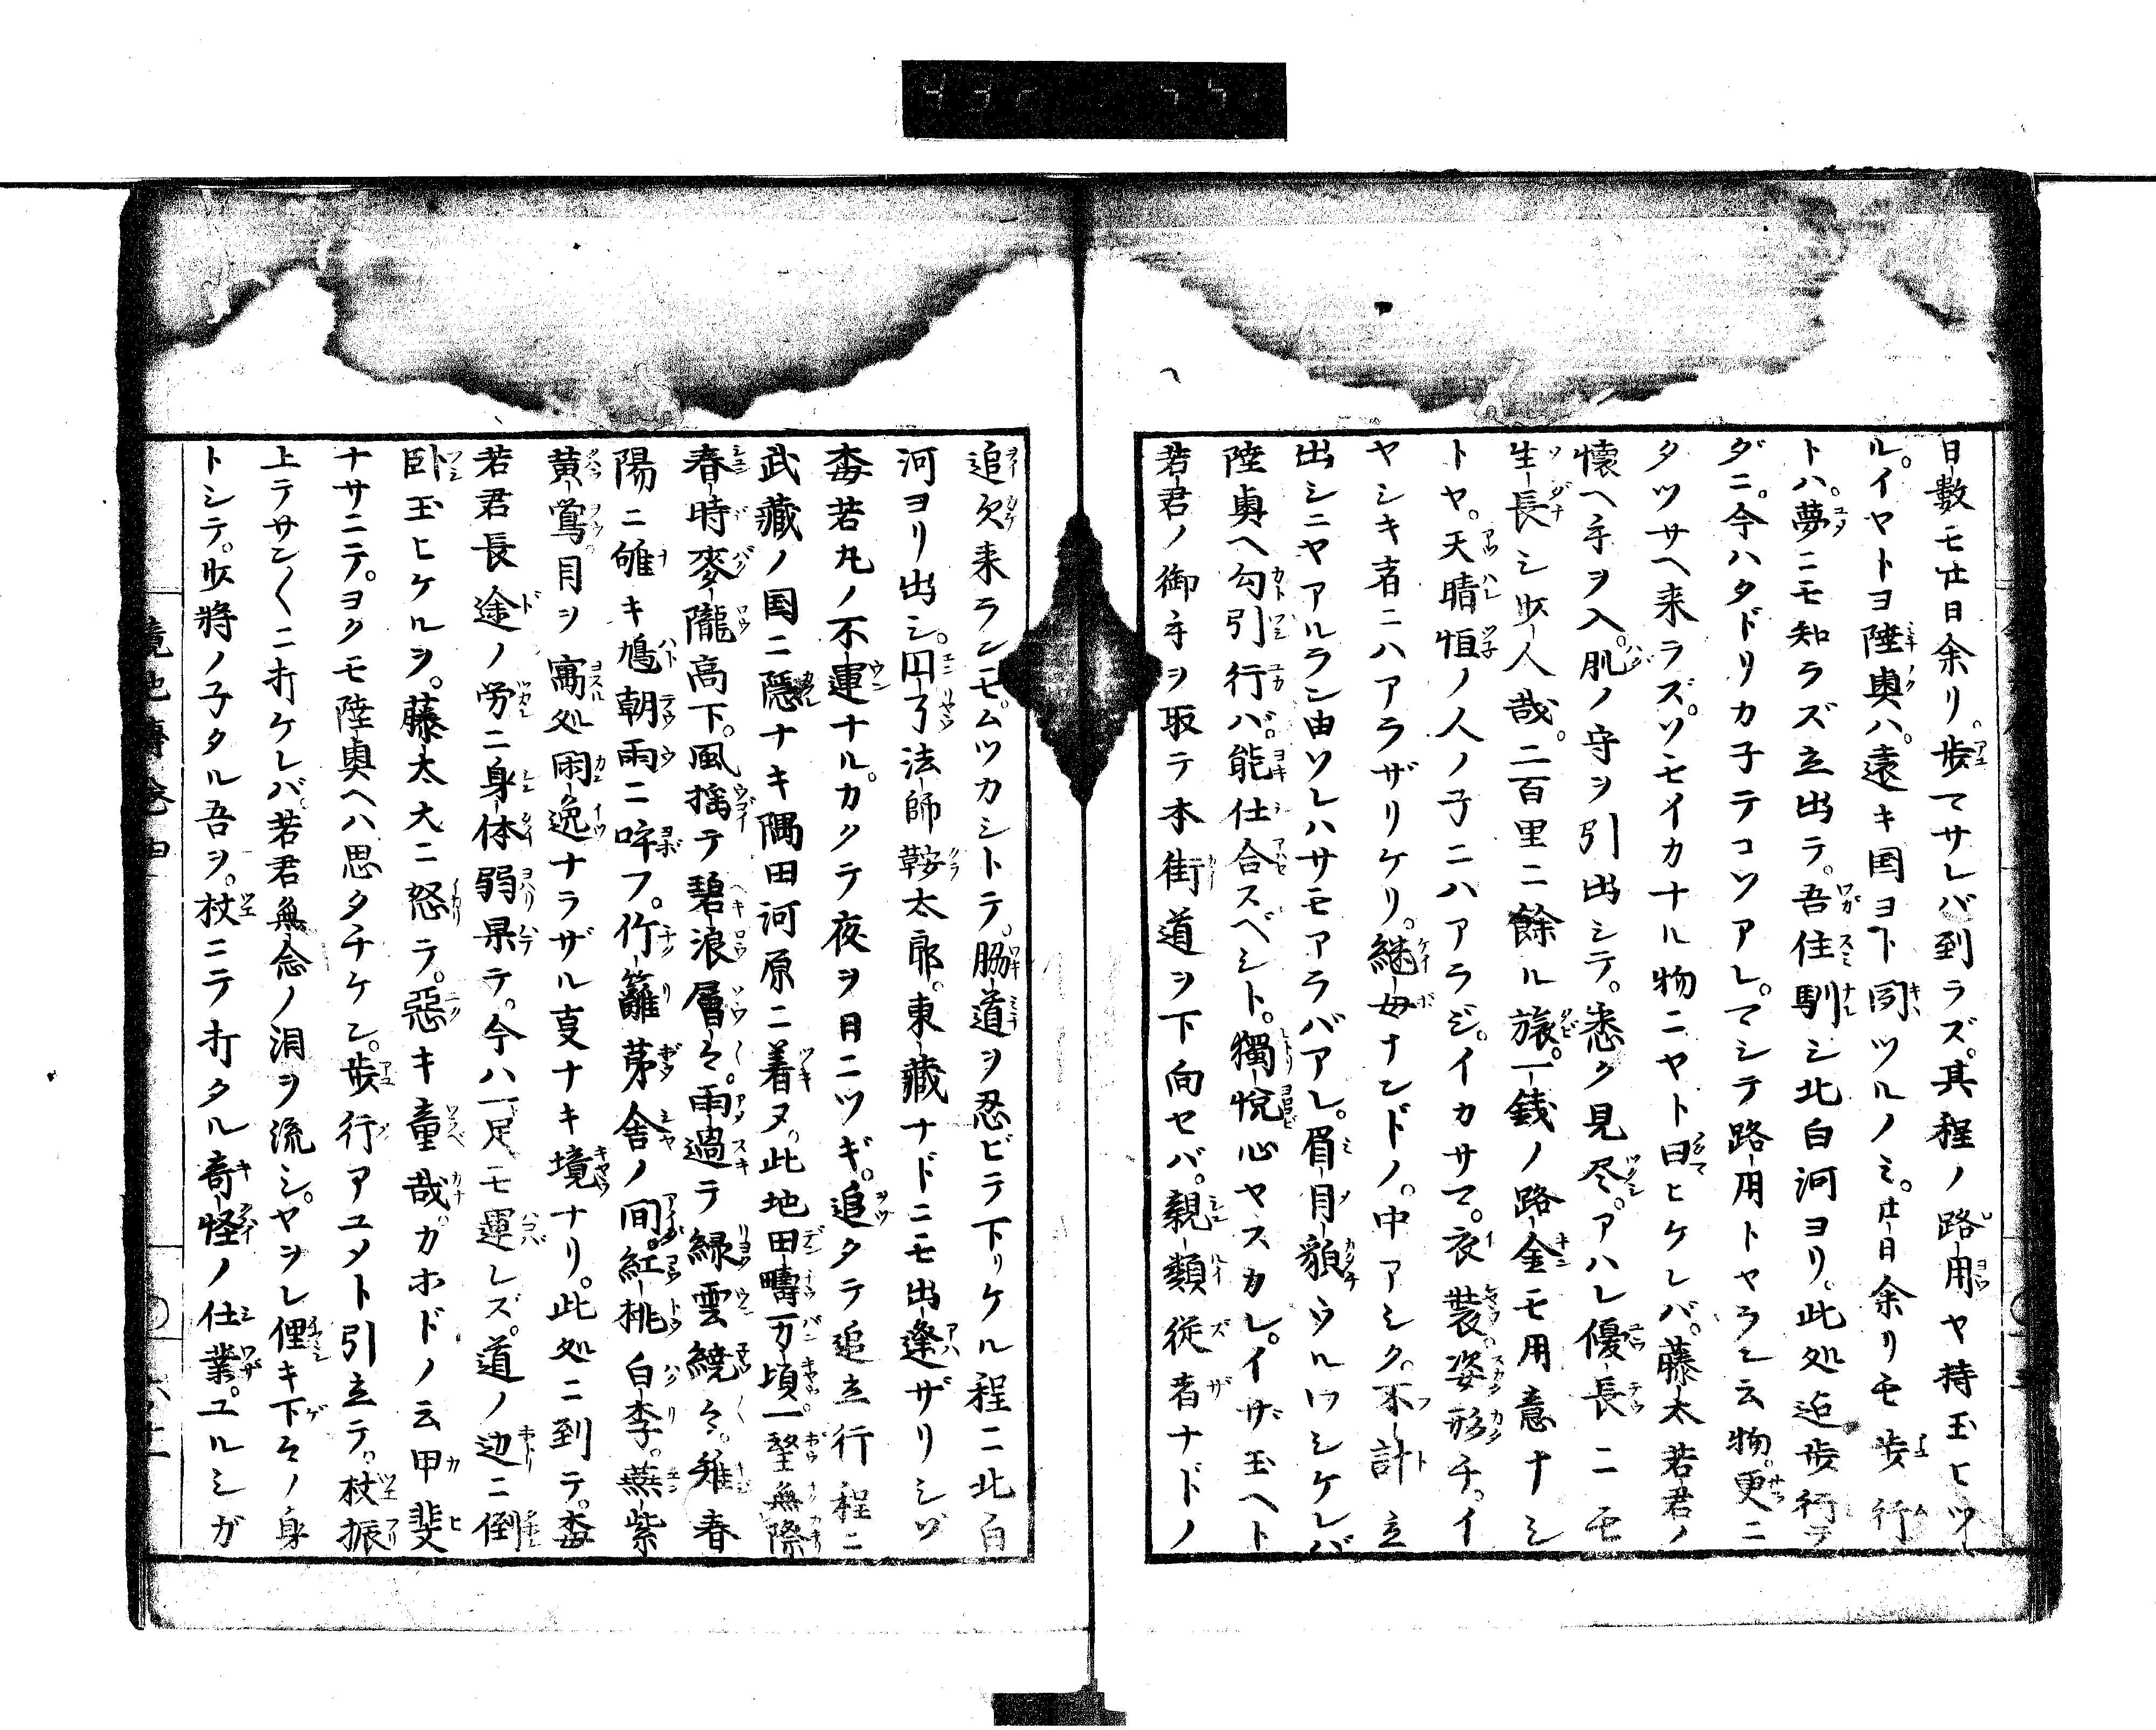 日数モ廿日余リ。歩マサレバ到ラズ。其程ノ路用ヤ持玉ヒツ
ル。イヤトヨ陸奥ハ。遠キ国ヨト聞ツルノミ。廿日余リモ歩行
トハ。夢ニモ知ラズ立出テ。吾住馴シ北白河ヨリ。此処迠歩行ヲ
ダニ。今ハタドリカ子テコソアレ。マシテ路用トヤラン云物。更ニ
タツサヘ来ラズ。ソモイカナル物ニヤト曰ヒケレバ。藤太若君ノ
懐ヘ手ヲ入。肌ノ守ヲ引出シテ。悉ク見尽。アハレ優長ニモ
生長シ少人哉。二百里ニ餘ル旅。一銭ノ路金モ用意ナシ
トヤ。天晴恒ノ人ノ子ニハアラジ。イカサマ。衣裝姿形チ。イ
ヤシキ者ニハアラザリケリ。継母ナンドノ。中アシク。不計立
出シニヤアルラン由ソレハサモアラバアレ。眉目貌ウルワシケレバ
陸奥ヘ勾引行バ。能仕合スベシト。獨悦心ヤスカレ。イザ玉ヘト
若君ノ御手ヲ取テ本街道ヲ下向セバ。親類従者ナドノ
追欠来ランモ。ムツカシトテ。脇道ヲ忍ビテ下リケル程ニ北白
河ヨリ出シ。円了法師鞍太郎。東藏ナドニモ出逢ザリシゾ
梅若丸ノ不運ナル。カクテ夜ヲ日ニツギ。追タテ追立行程ニ
武藏ノ国ニ隠ナキ隅田河原ニ着ヌ。此地田疇万頃一望無際
春時麥隴高下。風揺テ碧浪層々。雨過テ緑雲繞々。雉春
陽ニ雊キ鳩朝雨ニ呼フ。竹籬茅舎ノ間。紅桃白李。燕紫
黄鶯目ヲ寓処閑逸ナラザル㕝ナキ境ナリ。此処ニ到テ。梅
若君長途ノ労ニ身体弱果テ。今ハ一足モ運レズ。道ノ辺ニ倒
臥玉ヒケルヲ。藤太大ニ怒テ。惡キ童哉。カホドノ云甲斐
ナサニテ。ヨクモ陸奥ヘハ思タチケン。歩行アユメト引立テ。杖振
上テサン〱ニ打ケレバ。若君無念ノ泪ヲ流シ。ヤヲレ俚キ下々ノ身
トシテ。少將ノ子タル吾ヲ。杖ニテ打タル竒怪ノ仕業。ユルシガ